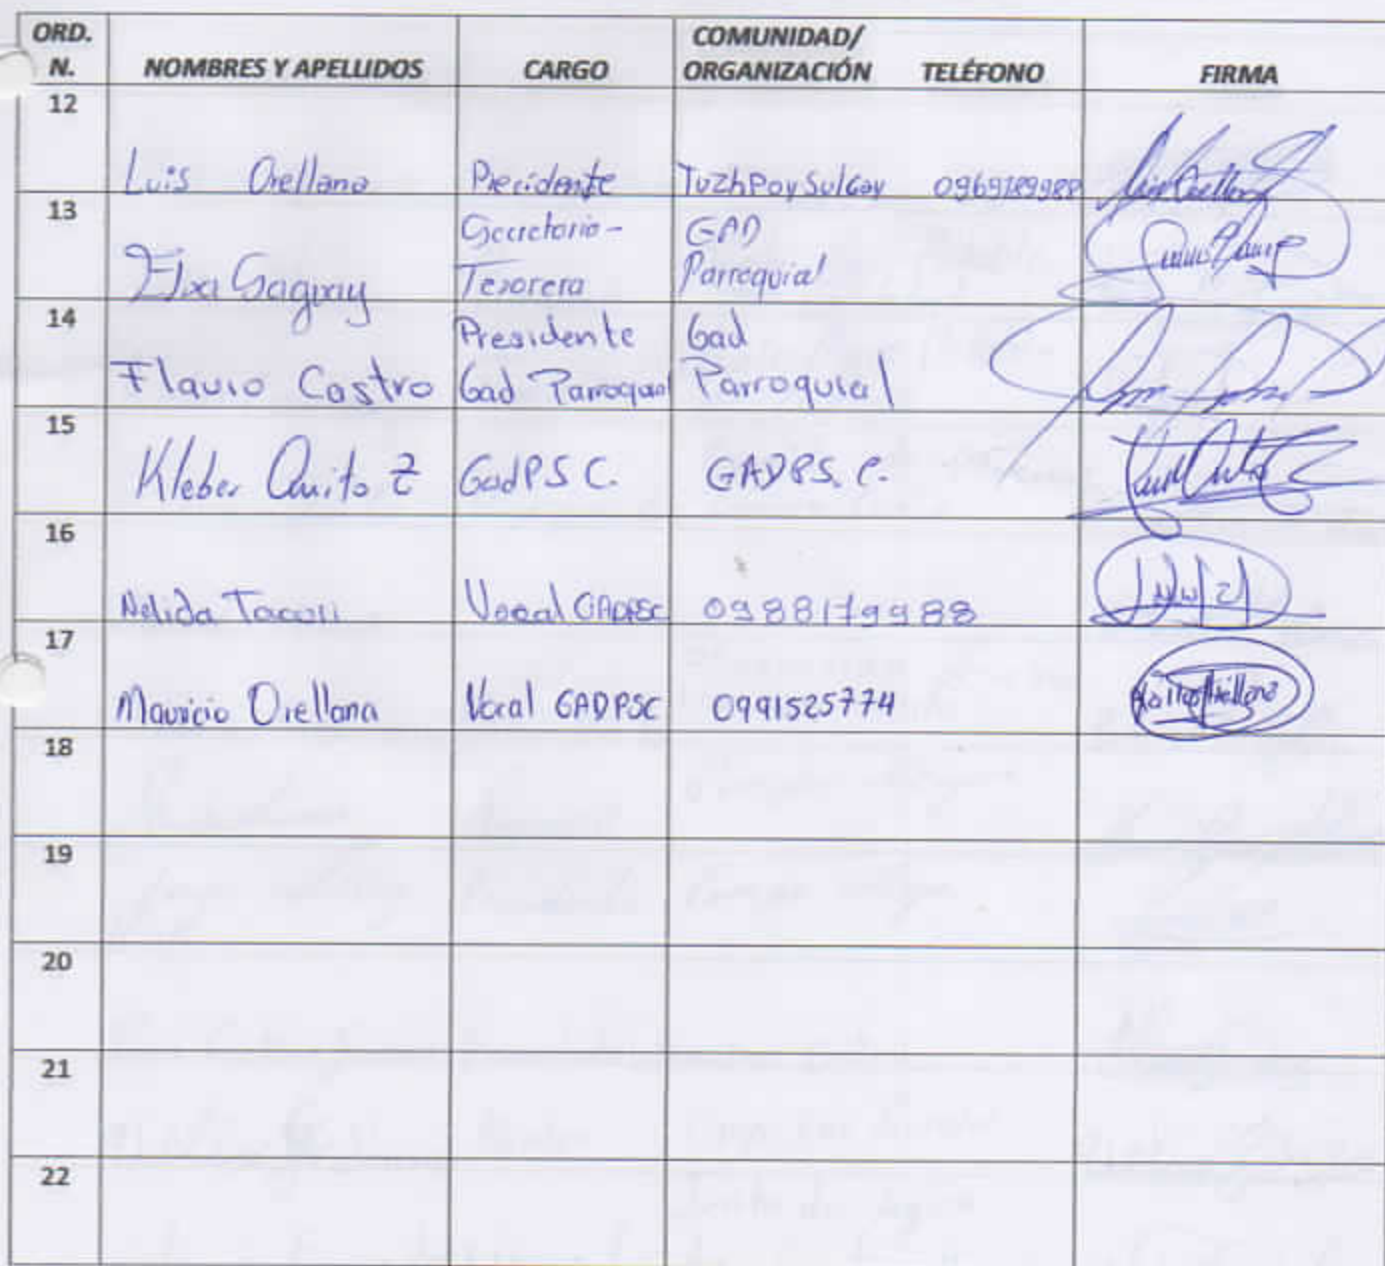 ORD. N. NOMBRES Y APELLIDOS CARGO COMUNIDAD/ ORGANIZACIÓN TELÉFONO FIRMA
12 Luis Orellana Precidente TuzhPoySulCay
13 Secretaria- GAD
Tesorera Parroquial
14 Presidente Gad
Flavio Castro Gad Parroquial Parroquial
15 Kleber Quito Z GadPS C. GADPS. C.
16 Nelida Vocal GADPSC 0988179988
17 Mauricio Orellana Vocal GADPSC 0991525774
18
19
20
21
22